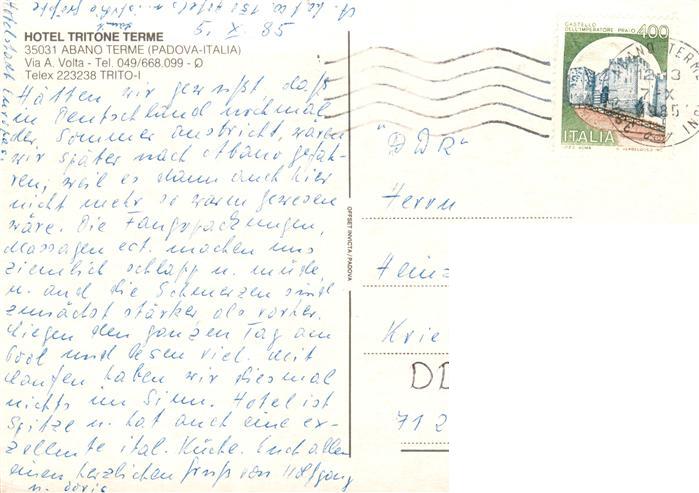 5. X. 85
HOTEL TRITONE TERME
35031 ABANO TERME (PADOVA-ITALIA)
Via A. Volta - Tel. 049/668.099 - Ø
Telex 223238 TRITO-I
Hätten wir gewußt daß
in Deutschland nochmal
der Sommer ausbricht, wären
wir später nach Abano gefah-
ren, weil es dann auch hier
nicht mehr so warm gewesen
wäre. Die Fangopackungen,
Massagen ect. machen uns
ziemlich schlapp u. müde,
u. auch die Schmerzen sind
zunächst stärker als vorher.
Liegen den ganzen Tag am
Pool und lesen viel. Mit
Laufen haben wir diesmal
nichts im Sinn. Hotel ist
Spitze u. hat auch eine ex-
zellente ital. Küche. Euch allen
einen herzlichen Gruß von Wolfgang
u. Doris
OFFSET INVICTA/PADOVA
CASTELLO
DELL'IMPERATORE PRATO
400
ITALIA
ABANO TERME
12
X
1985
"DDR"
Herrn
Heinz
Krie
DD
712